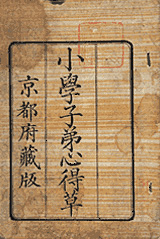 小學子弟心得草
京都府藏版